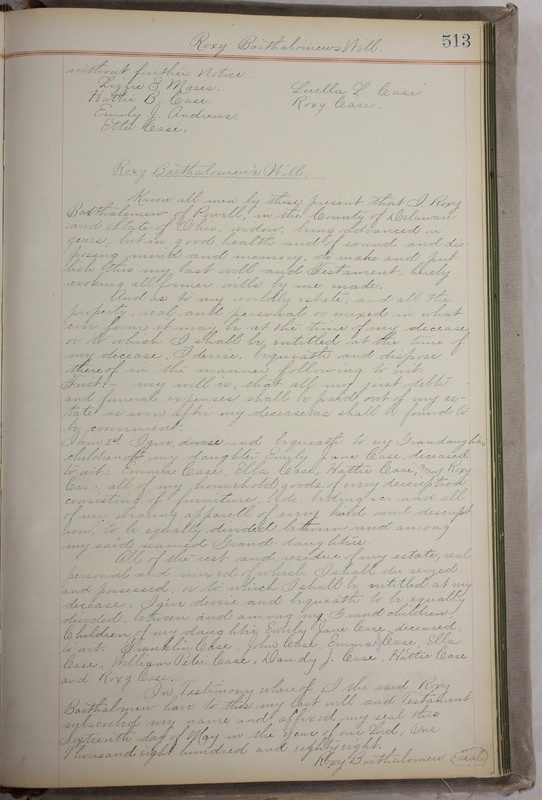 Roxy Bartholomew's Will. 513
without further Notice.
Lizzie E Moses. Luella L. Case
Hattie B. Case. Roxy Case.
Emily J. Andrews.
Etta Case.
Roxy Bartholomew's Will.
Know all men by these present that I Roxy
Bartholomew of Powell, in the County of Delaware
and State of Ohio, widow, being advanced in
years, but in good health and of sound and dis
posing mind and memory, do make and pub
lish this my last will and Testament, hereby
revoking all former wills by me made.
And as to my worldly estate, and all the
property, real and personal or mixed in what
ever form it may be at the time of my decease
or to which I shall be entitled at the time of
my decease, I devise, bequeath and dispose
thereof in the manner following to wit.
First:- my will is, that all my just debts
and funeral expenses shall be paid out of my es-
tate as soon after my decease as shall be found to
be convenient.
Item 1st I give, devise and bequeath to my Grandaughters
children of my daughter Emily Jane Case, deceased
to wit. Emma Case, Ella Case, Hattie Case, and Roxy
Case. all of my household goods of every description
consisting of furniture, beds, beding &c. and all
of my wearing apparell of every kind and descript
ion, to be equally divided between and among
my said named Grand-daughters.
All of the rest and residue of my estate, real
personal and mixed of which I shall die seized
and possessed, or to which I shall be entitled at my
decease. I give devise and bequeath to be equally
divided between and among my Grand children,
Children of my daughter Emily Jane Case, deceased,
to wit. Franklin Case, John Case, Emma Case, Ella
Case, William Peter Case, Dandy J. Case, Hattie Case
and Roxy Case.
In Testimony whereof I the said Roxy
Bartholomew have to this my last will and Testament
subscribed my name and affixed my seal this
Sixteenth day of May in the year of our Lord, One
Thousand eight hundred and eighty eight.
Roxy Bartholomew (seal)